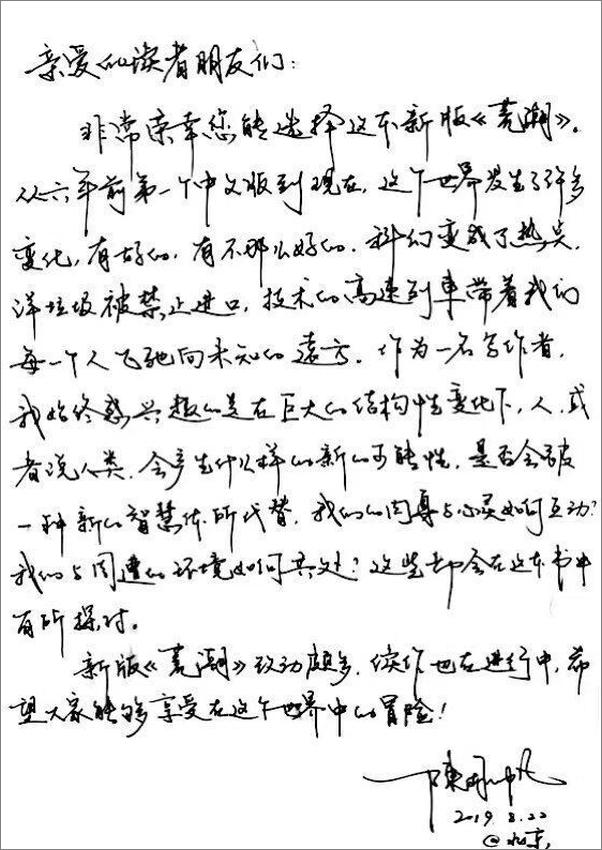 亲爱的读者朋友们：
非常荣幸您能选择这本新版《荒潮》。
从六年前第一个中文版到现在，这个世界发生了许多
变化，有好的，有不那么好的。科幻变成了热点，
洋垃圾被禁止进口，技术的高速列車带着我们
每一个人飞驰向未知的遠方。作为一名写作者，
我始终感兴趣的是在巨大的结构性变化下，人，或
者说人类，会产生什么样的新的可能性，是否会被
一种新的智慧体所代替，我们的肉身与心灵如何互动？
我们与周遭的环境如何共处？这些都会在这本书中
有所探讨。
新版《荒潮》改动颇多，续作也在进行中，希
望大家能够享受在这个世界中的冒险！
陳楸帆
2019.8.22
@北京